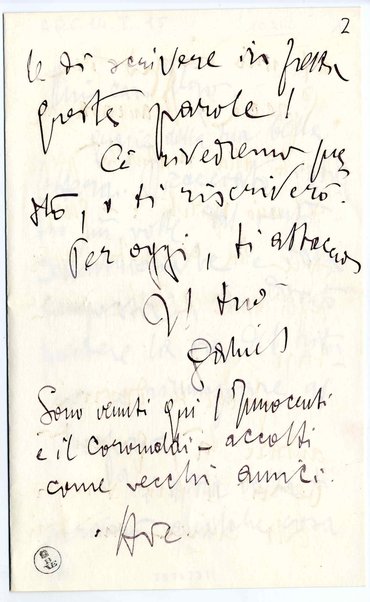 2
le di scrivere in fretta
queste parole!
Ci rivedremo pre
sto, e ti riscriverò.
Per oggi, ti abbraccio
Il tuo
Sono venuti qui l'Innocenti
e il Coromaldi - accolti
come vecchi amici.